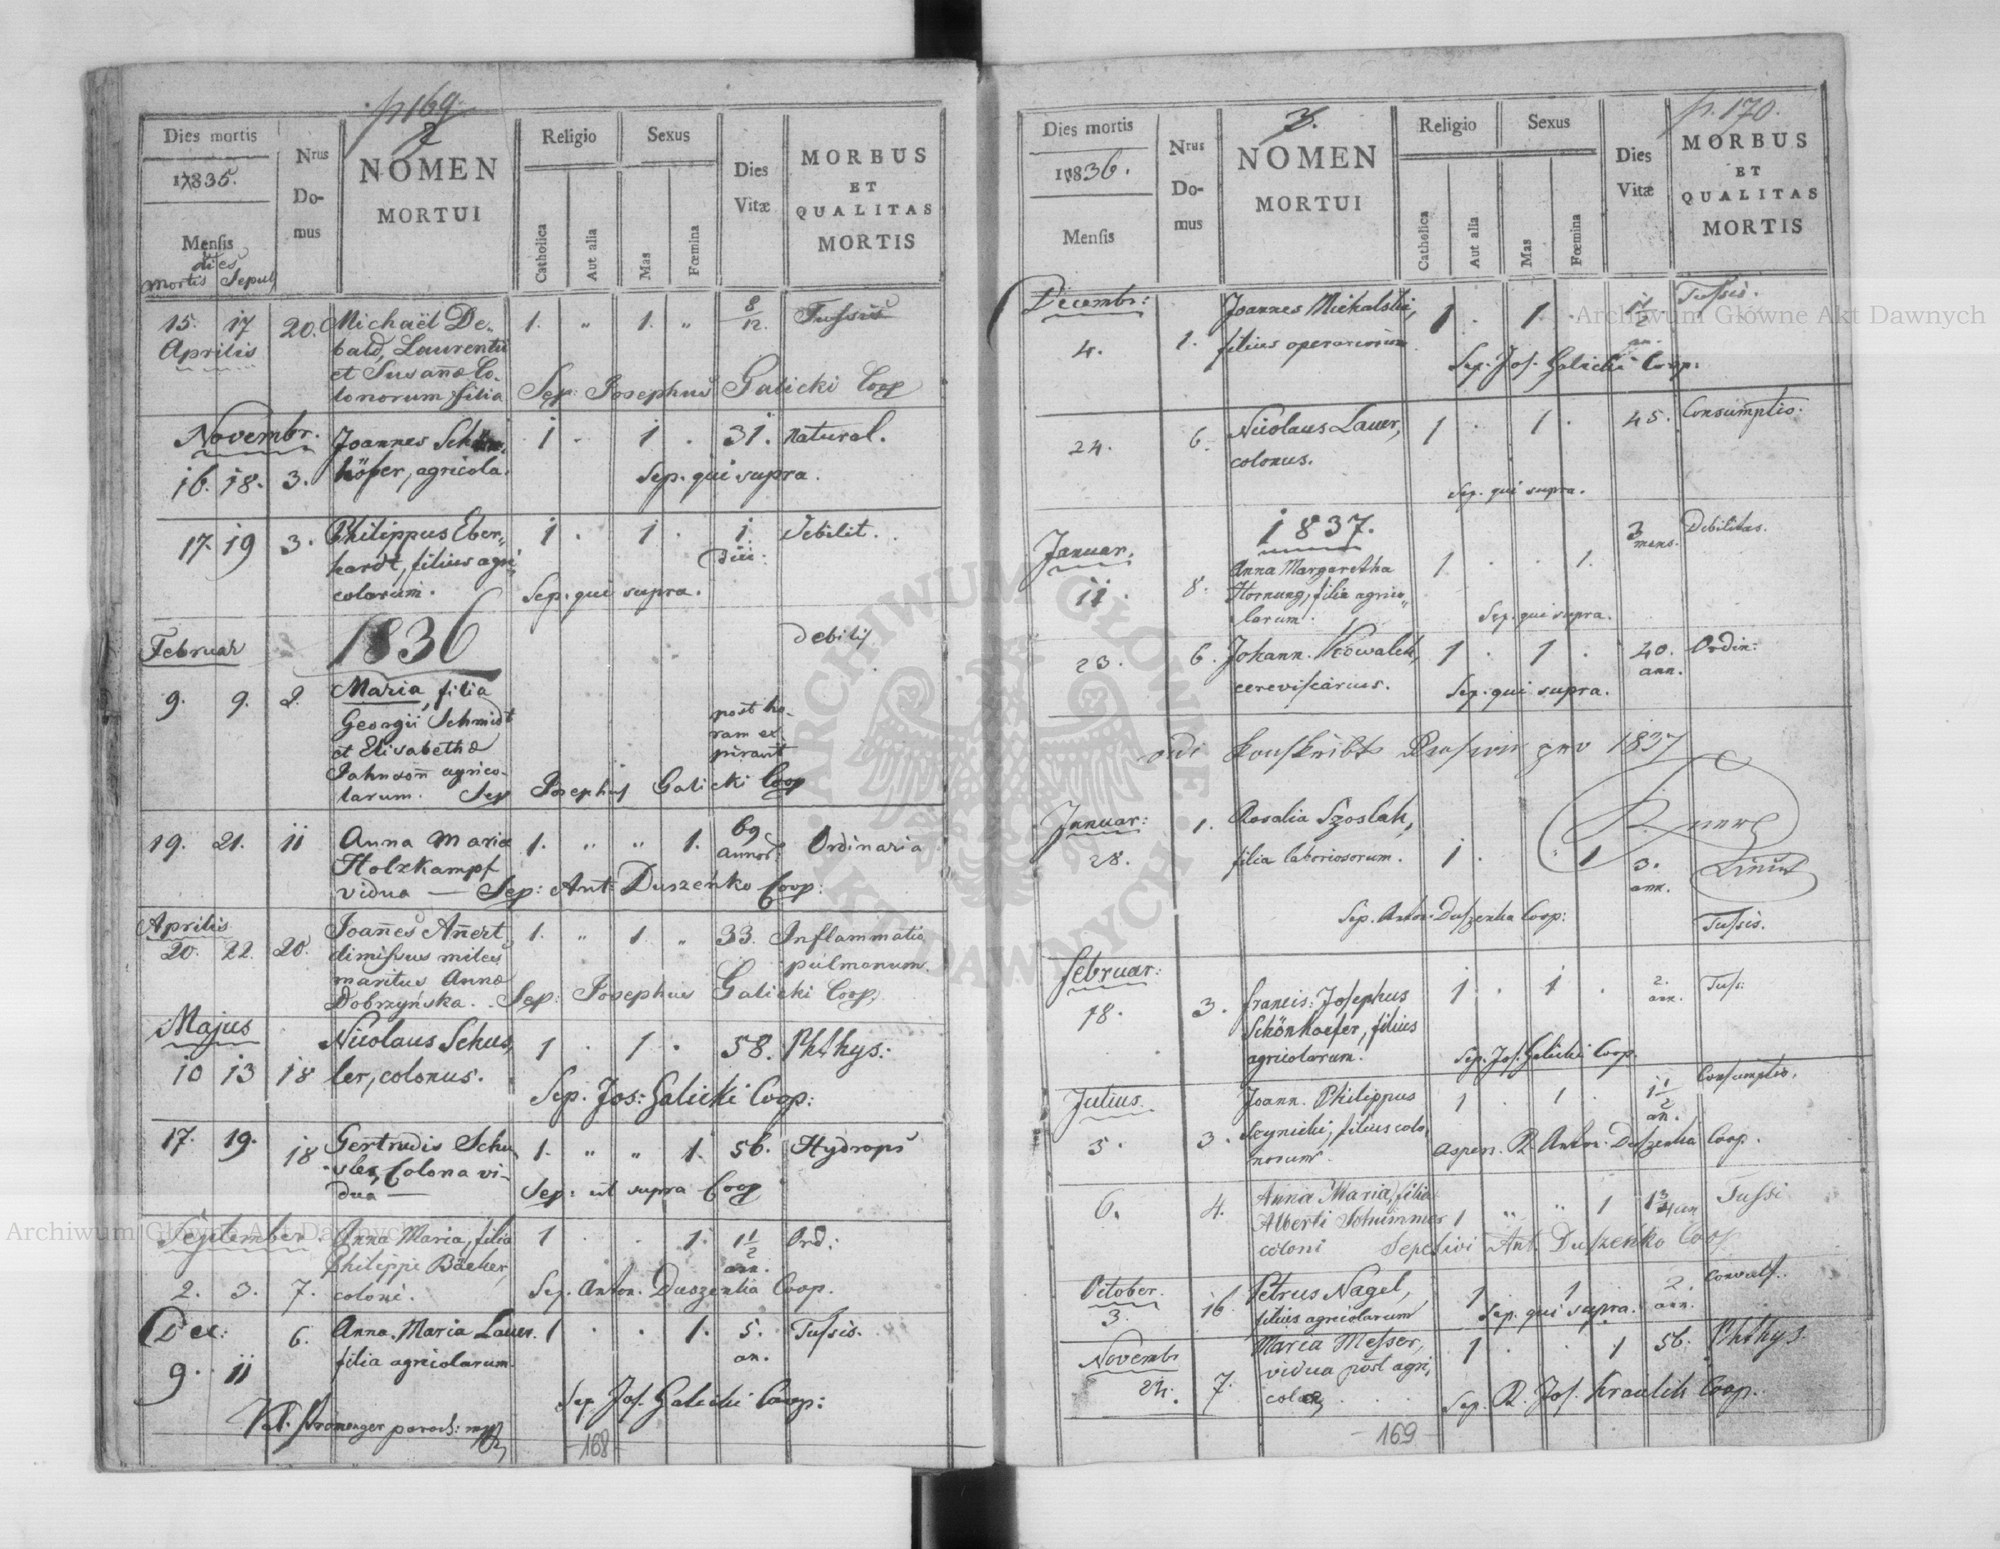 p 169.
2
Dies mortis
1835.
Mensis
dies
Mortis Sepul
Nrus
Do-
mus
NOMEN
MORTUI
Religio
Catholica
Aut alia
Sexus
Mas
Fœmina
Dies
Vitæ
MORBUS
ET
QUALITAS
MORTIS
15. 17 20. Michaël De- 1. " 1. " 8/12. Tussis
Aprilis bald, Laurentii
et Susannæ Co-
lonorum filia Sep: Josephus Galicki Coop
Novembr. Joannes Schön- 1 . 1 . 31. natural.
16. 18. 3. höfer, agricola. Sep. qui supra.
17. 19 3. Philippus Eber- 1 . 1 . 1. Debilit.
hardt, filius agri- diei:
colarum. Sep. qui supra.
Februar 1836 Debilis
9. 9. 2. Maria, filia
Georgii Schmidt post ho-
et Elisabethæ ram ex-
Jahnson agrico- pirant
larum. Sep Josephus Galicki Coop
19. 21. 11 Anna Maria 1. " " 1. 69 Ordinaria
Holzkampf annor:
vidua — Sep: Ant: Duszeńko Coop:
Aprilis Joannes Annert 1. " 1 " 33. Inflammatio
20. 22. 20. dimissus miles pulmonum.
maritus Annæ
Dobrzyńska. Sep: Josephus Galicki Coop:
Majus Nicolaus Schus- 1 . 1 . 58. Phthys:
10 13 18 ler, colonus. Sep. Jos: Galicki Coop:
17. 19. 18 Gertrudis Schu- 1. " " 1. 56. Hydrops
sler, Colona vi-
dua — Sep: ut supra Coop
September. Anna Maria, filia 1 . . 1. 1 1/2 ann. Ord:
Philippi Bäcker,
2. 3. 7. coloni. Sep. Anton. Duszenka Coop.
Dec: 6. Anna Maria Lauer. 1 . . 1. 5. Tussis.
9. 11 filia agricolarum. an.
Sep. Jos. Galicki Coop:
Val. Stromenger paroch: mp
168
p. 170.
3.
Dies mortis
1836.
Mensis
Nrus
Do-
mus
NOMEN
MORTUI
Religio
Catholica
Aut alia
Sexus
Mas
Fœmina
Dies
Vitæ
MORBUS
ET
QUALITAS
MORTIS
Decembr: Joannes Michalski, 1 . 1 . 1/2 Tussis.
4. 1. filius operariorum an.
Sep. Jos. Galicki Coop:
24. 6. Nicolaus Lauer, 1 . 1 . 45. Consumptio.
colonus.
Sep. qui supra.
1837.
Januar. 3 mens. Debilitas.
11 8. Anna Margaretha 1 . . 1.
Hornung, filia agrico-
larum. Sep. qui supra.
23. 6. Johann. Kowalek, 1 . 1 . 20. ann. Ordin:
cerevisiarius. Sep. qui supra.
1837
Januar: 1. Rosalia Szoslak,
28. filia laboriosorum. 1 . . 1 3. ann.
Sep. Anton. Duszenka Coop: Tussis.
Februar:
18. 3. Francis: Josephus 1 . 1 . 2. ann. Tuss:
Schönhoefer, filius
agricolarum. Sep. Jos. Galicki Coop.
Julius. Joann. Philippus 1 . 1 . 1 1/2 an. Consumptio.
5. 3. filius colo-
norum. aspers. R. Anton. Duszenka Coop.
6. 4. Anna Maria, filia
Alberti Schimmer 1 " " 1 1 3/4 an Tussi
coloni Sepelivi Ant. Duszenko Coop
October. 16. Petrus Nagel, 1 . 1 . 2. ann. Convuls.
3. filius agricolarum Sep. qui supra.
Novembr Maria Messer, 1 . . 1 56. Phthys.
24. 7. vidua post agri-
colæ Sep. R. Jos. Kraulik Coop.
169
Archiwum Główne Akt Dawnych
Archiwum Główne Akt Dawnych
ARCHIWUM GŁÓWNE · AKT DAWNYCH ·